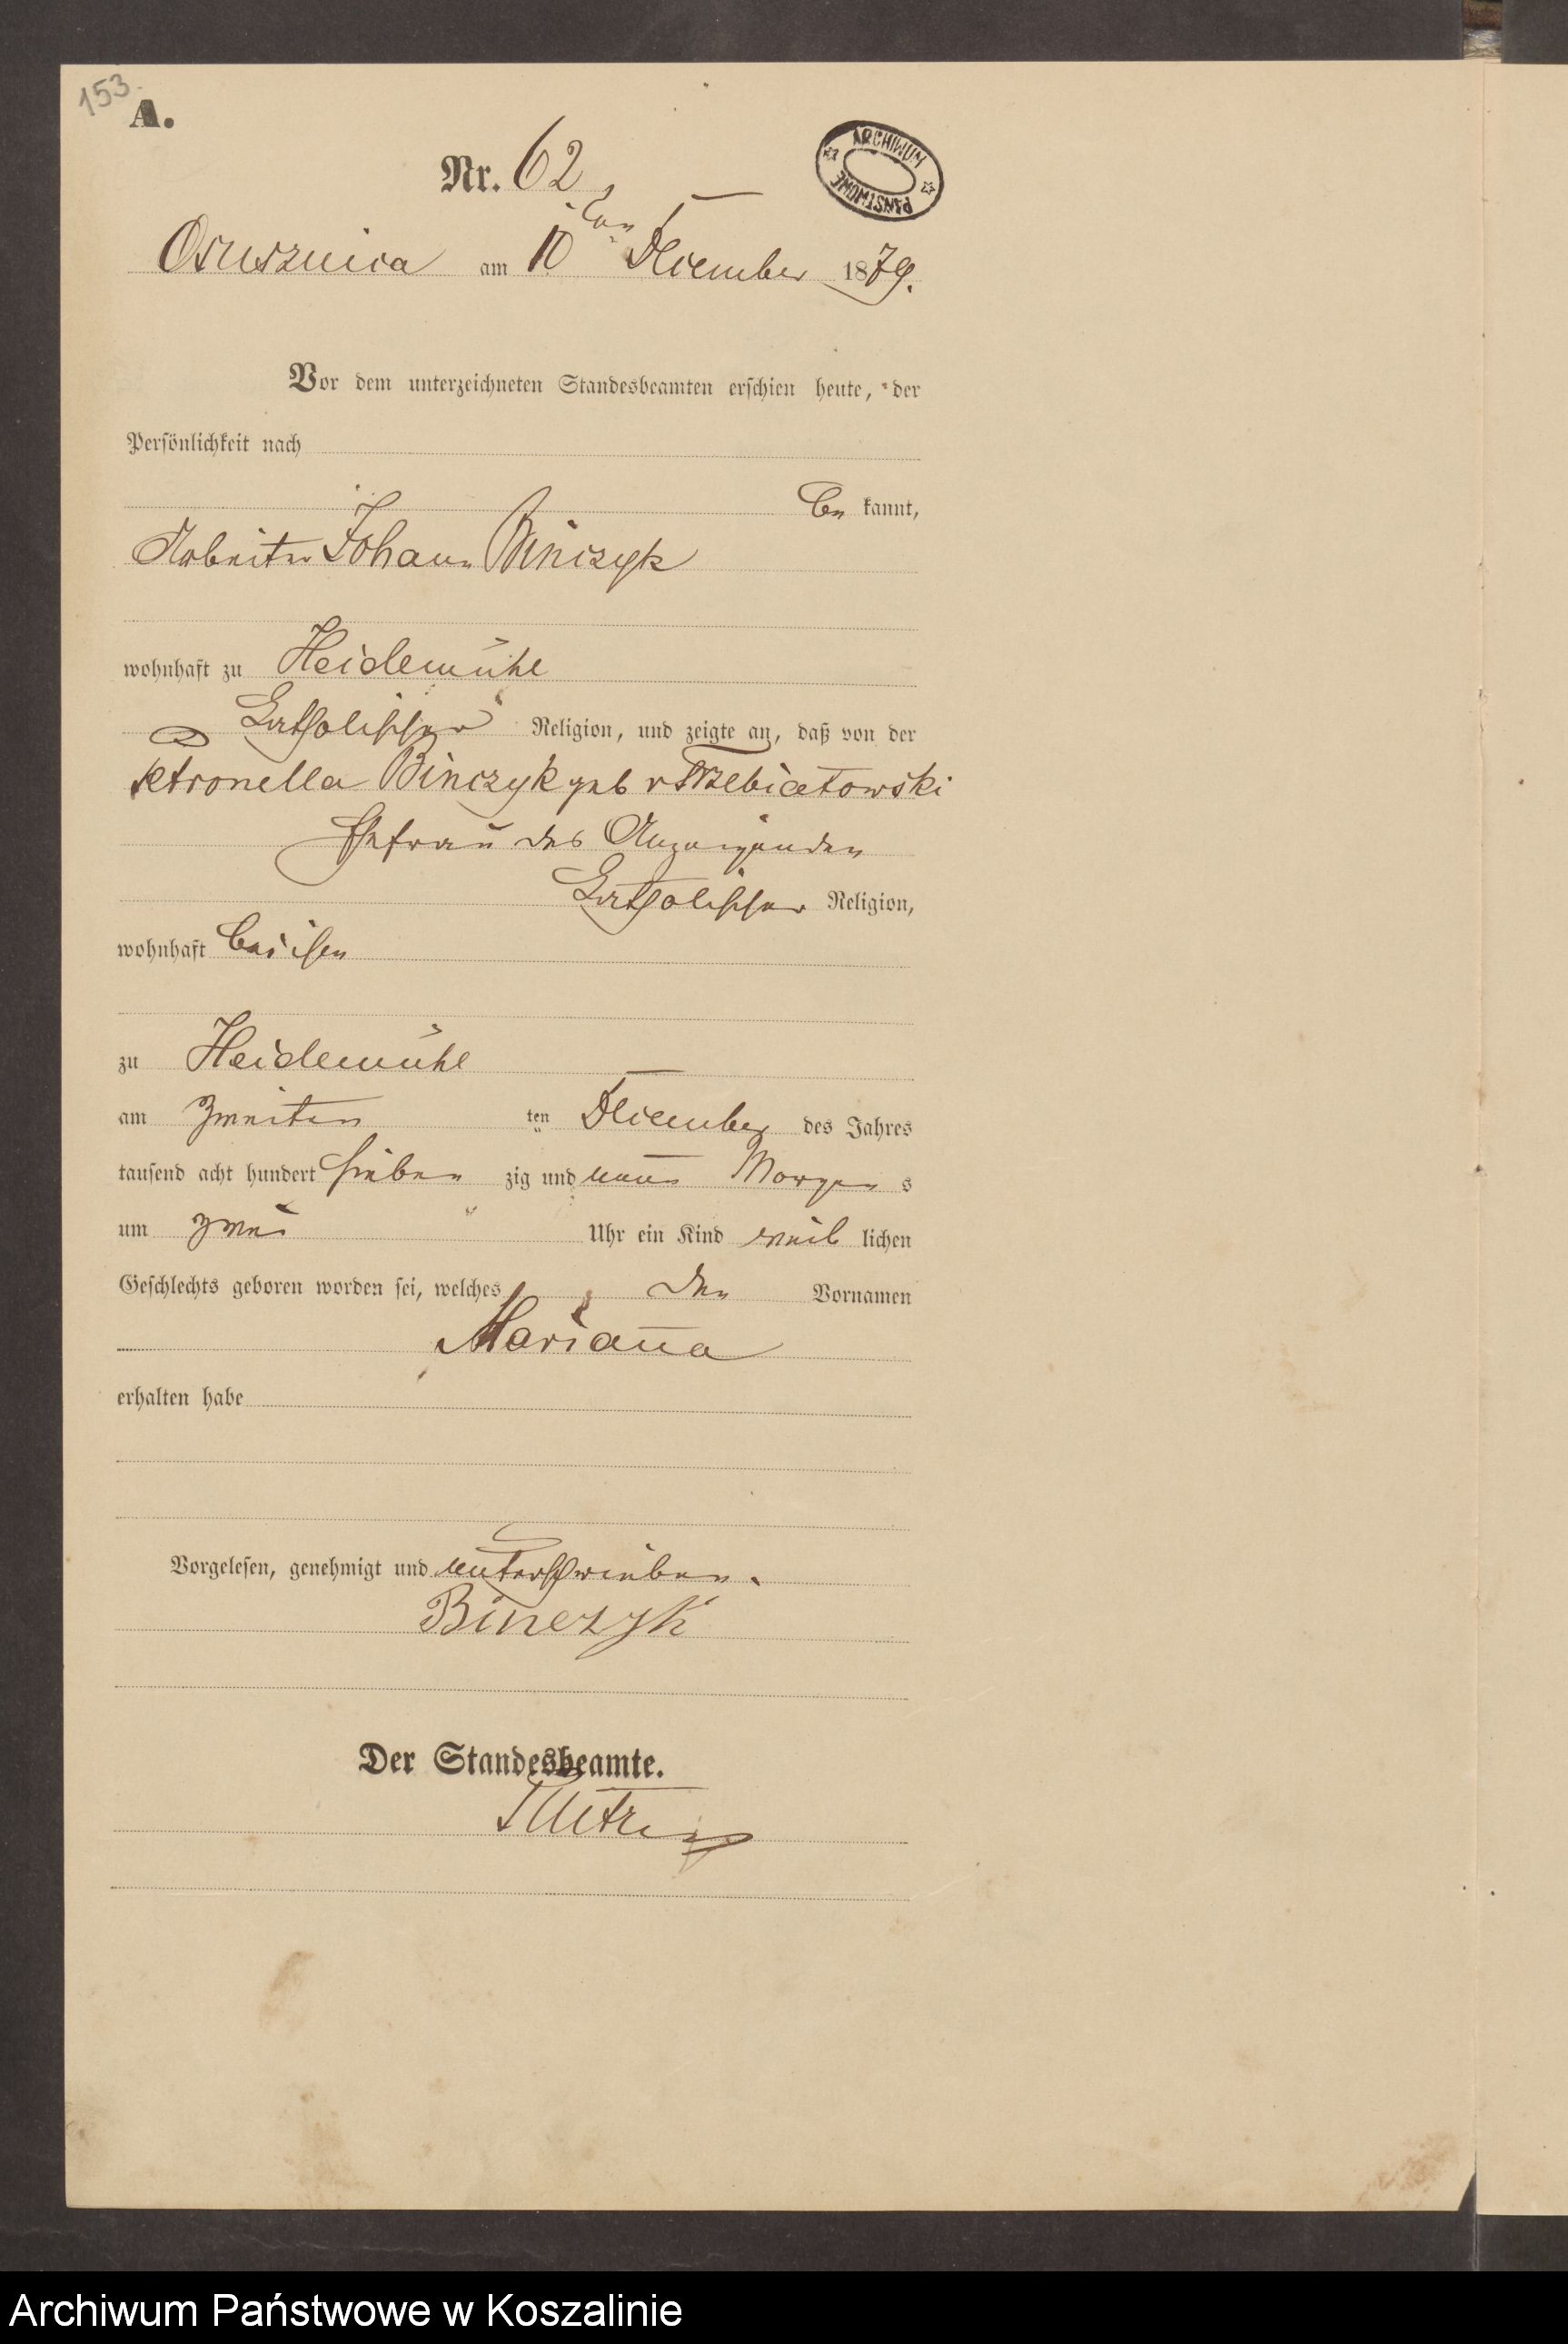 153.
A.
Nr. 62
ARCHIWUM PAŃSTWOWE
Osusznica am 10ten December 1879.
Vor dem unterzeichneten Standesbeamten erschien heute, der
Persönlichkeit nach
be kannt,
Arbeiter Johann Binczyk
wohnhaft zu Heidemühl
katholischer Religion, und zeigte an, daß von der
Petronella Binczyk geb v Trzebiatowski
Ehefrau des Anzeigenden
katholischer Religion,
wohnhaft bei ihm
zu Heidemühl
am zweiten ten December des Jahres
tausend acht hundert sieben zig und neun Morgen s
um zwei Uhr ein Kind weib lichen
Geschlechts geboren worden sei, welches den Vornamen
Marian̄a
erhalten habe
Vorgelesen, genehmigt und unterschrieben.
Binczyk
Der Standesbeamte.
Archiwum Państwowe w Koszalinie